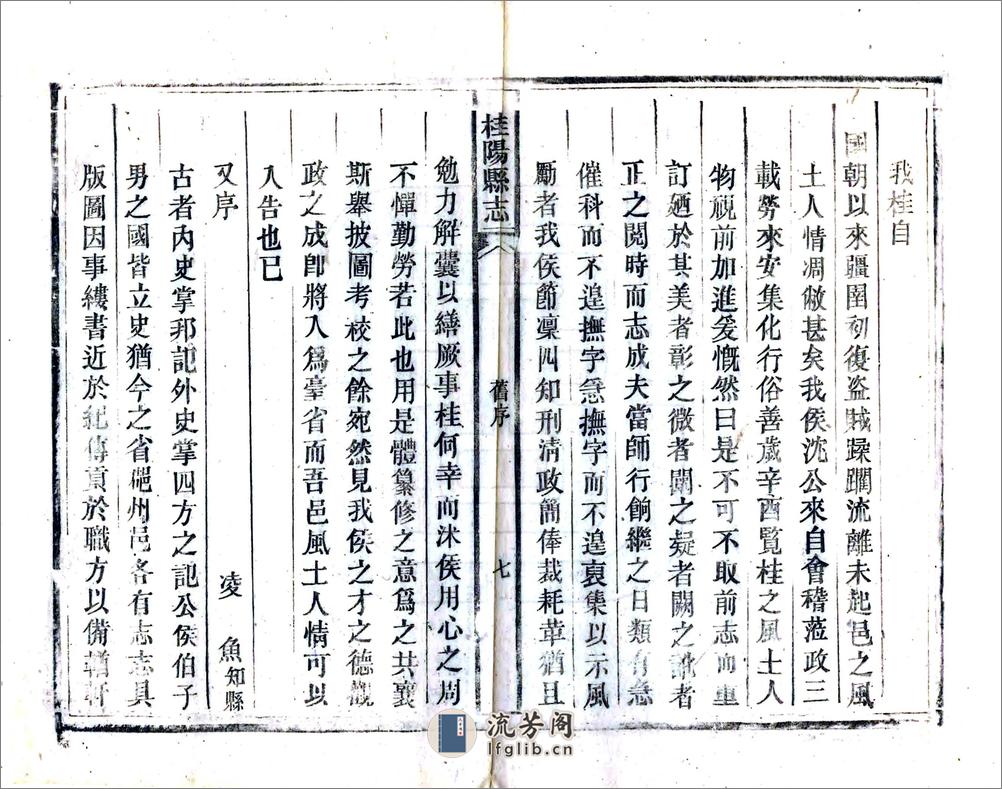 我桂自
國朝以來疆圉初復盜賊蹂躪流離未起邑之風
土人情凋敝甚矣我侯沈公來自會稽蒞政三
載勞來安集化行俗善歲辛酉覽桂之風土人
物視前加進爰慨然曰是不可不取前志而重
訂廼於其美者彰之微者闡之疑者闕之訛者
正之閱時而志成夫當師行餉繼之日類有急
催科而不遑撫字急撫字而不遑裒集以示風
勵者我侯節凜四知刑清政簡俸裁耗革猶且
桂陽縣志 卷 舊序 七
勉力解囊以繕厥事桂何幸而沐侯用心之周
不憚勤勞若此也用是體纂修之意爲之共襄
斯舉披圖考校之餘宛然見我侯之才之德觀
政之成卽將入爲臺省而吾邑風土人情可以
入告也已
又序 凌 魚知縣
古者內史掌邦記外史掌四方之記公侯伯子
男之國皆立史猶今之省郡州邑各有志志具
版圖因事縷書近於紀傳貢於職方以備輶軒
流芳阁
lfglib.cn